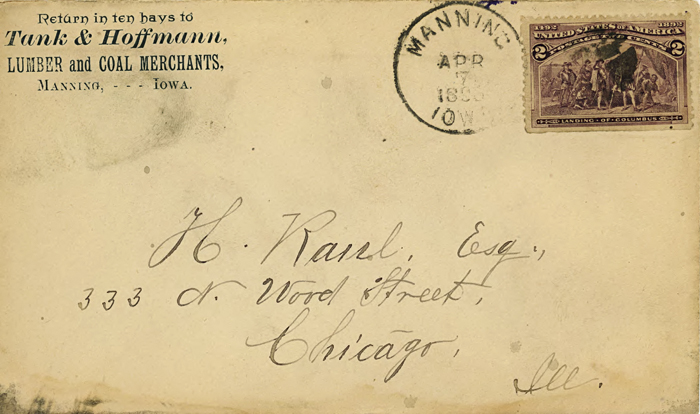 Return in ten days to
Tank & Hoffmann,
LUMBER and COAL MERCHANTS,
MANNING, - - - IOWA.
MANNING
APR
7
IOWA
1492 1892
UNITED STATES OF AMERICA
POSTAGE TWO CENTS
2 2
LANDING - OF - COLUMBUS
H. Esq.,
333 N. Wood Street,
Chicago,
Ill.